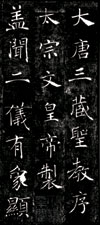 大唐三藏聖教序
太宗文皇帝製
盖聞二儀有象顯